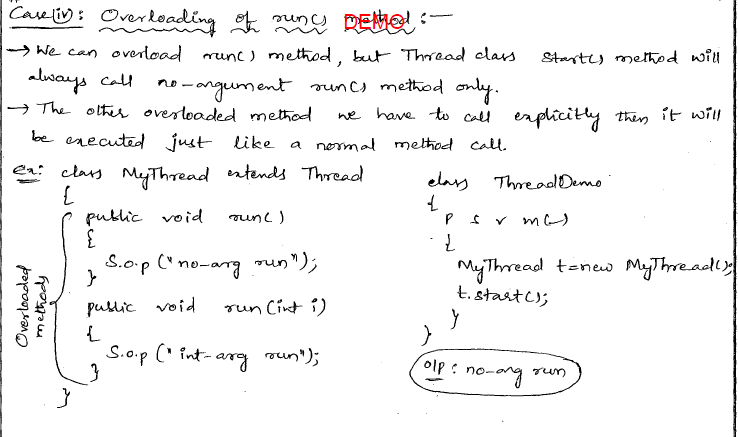 Case(iv): Overloading of run() method :—
DEMO
→ We can overload run() method, but Thread class start() method will
always call no-argument run() method only.
→ The other overloaded method we have to call explicitly then it will
be executed just like a normal method call.
Ex: class MyThread extends Thread
{
public void run()
{
S.o.p ("no-arg run");
}
public void run(int i)
{
S.o.p ("int-arg run");
}
}
Overloaded
methods
class ThreadDemo
{
p s v m(—)
{
MyThread t=new MyThread();
t.start();
}
}
o/p : no-arg run